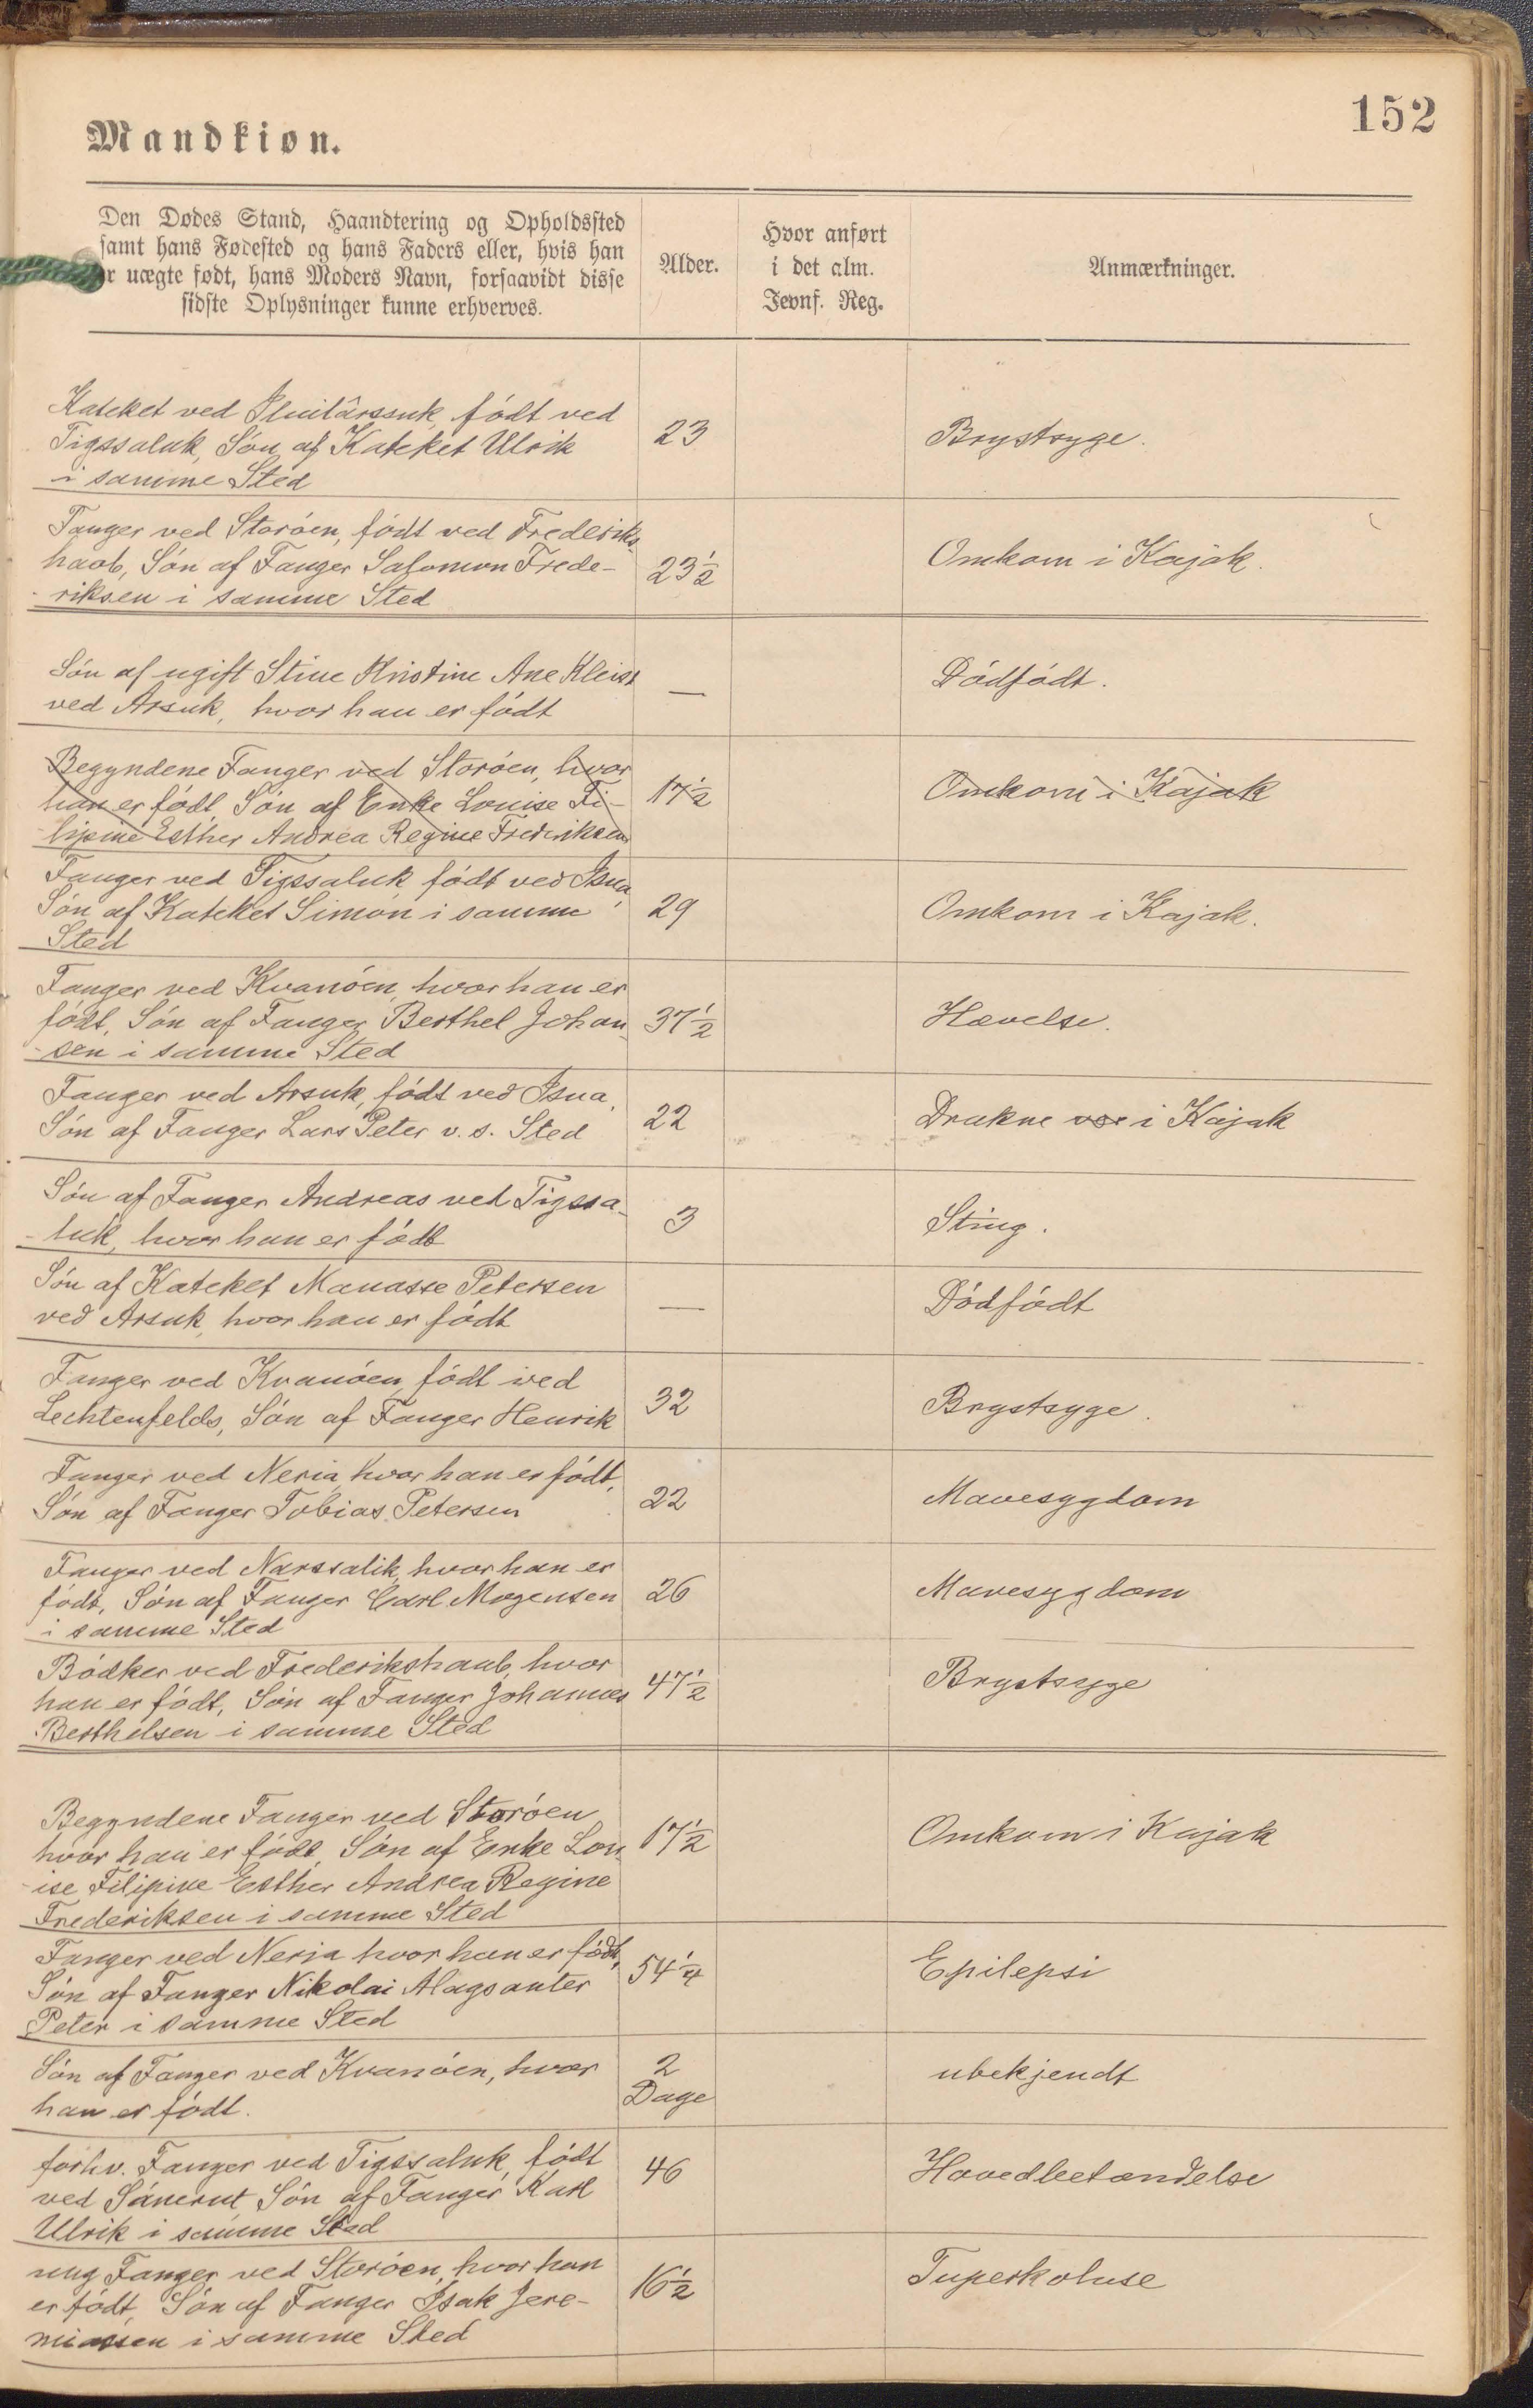 152
Mandkiøn.
Den Dødes Stand, Haandtering og Opholdssted
samt hans Fødested og hans Faders eller, hvis han
er uægte født, hans Moders Navn, forsaavidt disse
sidste Oplysninger kunne erhverves.
Alder.
Hvor anført
i det alm.
Jevnf. Reg.
Anmærkninger.
Kateket ved Iluilârssuk, født ved
Tigssaluk, Søn af Kateket Ulrik
i samme Sted
23
Brystsyge.
Fanger ved Storøen, født ved Frederiks-
haab, Søn af Fanger Salomon Frede-
riksen i samme Sted
23½
Omkom i Kajak.
Søn af ugift Stine Kristine Ane Kleist
ved Arsuk, hvor han er født
—
Dødfødt.
Begyndene Fanger ved Storøen, hvor
han er født, Søn af Enke Louise Fi-
lipine Esther Andrea Regine Frederiksen
17½
Omkom i Kajak
Fanger ved Tigssaluk født ved Isua,
Søn af Kateket Simon i samme
Sted
29
Omkom i Kajak.
Fanger ved Kvanøen, hvor han er
født, Søn af Fanger Berthel Johan-
sen i samme Sted
37½
Hævelse.
Fanger ved Arsuk, født ved Isua,
Søn af Fanger Lars Peter v. s. Sted
22
Drukne i Kajak
Søn af Fanger Andreas ved Tigssa-
luk, hvor han er født
3
Sting.
Søn af Kateket Manasse Petersen
ved Arsuk, hvor han er født
—
Dødfødt
Fanger ved Kvanøen, født ved
Lechtenfelds, Søn af Fanger Henrik
32
Brystsyge.
Fanger ved Neria, hvor han er født,
Søn af Fanger Tobias Petersen
22
Mavesygdom
Fanger ved Narssalik, hvor han er
født, Søn af Fanger Carl Mogensen
i samme Sted
26
Mavesygdom
Bødker ved Frederikshaab, hvor
han er født, Søn af Fanger Johannes
Berthelsen i samme Sted
47½
Brystsyge
Begyndene Fanger ved Storøen
hvor han er født, Søn af Enke Lou-
ise Filipine Esther Andrea Regine
Frederiksen i samme Sted
17½
Omkom i Kajak
Fanger ved Neria hvor han er født,
Søn af Fanger Nikolai Alagsanter
Peter i samme Sted
54¼
Epilepsi
Søn af Fanger ved Kvanøen, hvor
han er født.
2
Dage
ubekjendt
forhv. Fanger ved Tigssaluk, født
ved Sánerut, Søn af Fanger Karl
Ulrik i samme Sted
46
Hovedbetændelse
ung Fanger ved Storøen, hvor han
er født, Søn af Fanger Isak Jere-
miassen i samme Sted
16½
Tuperkoluse